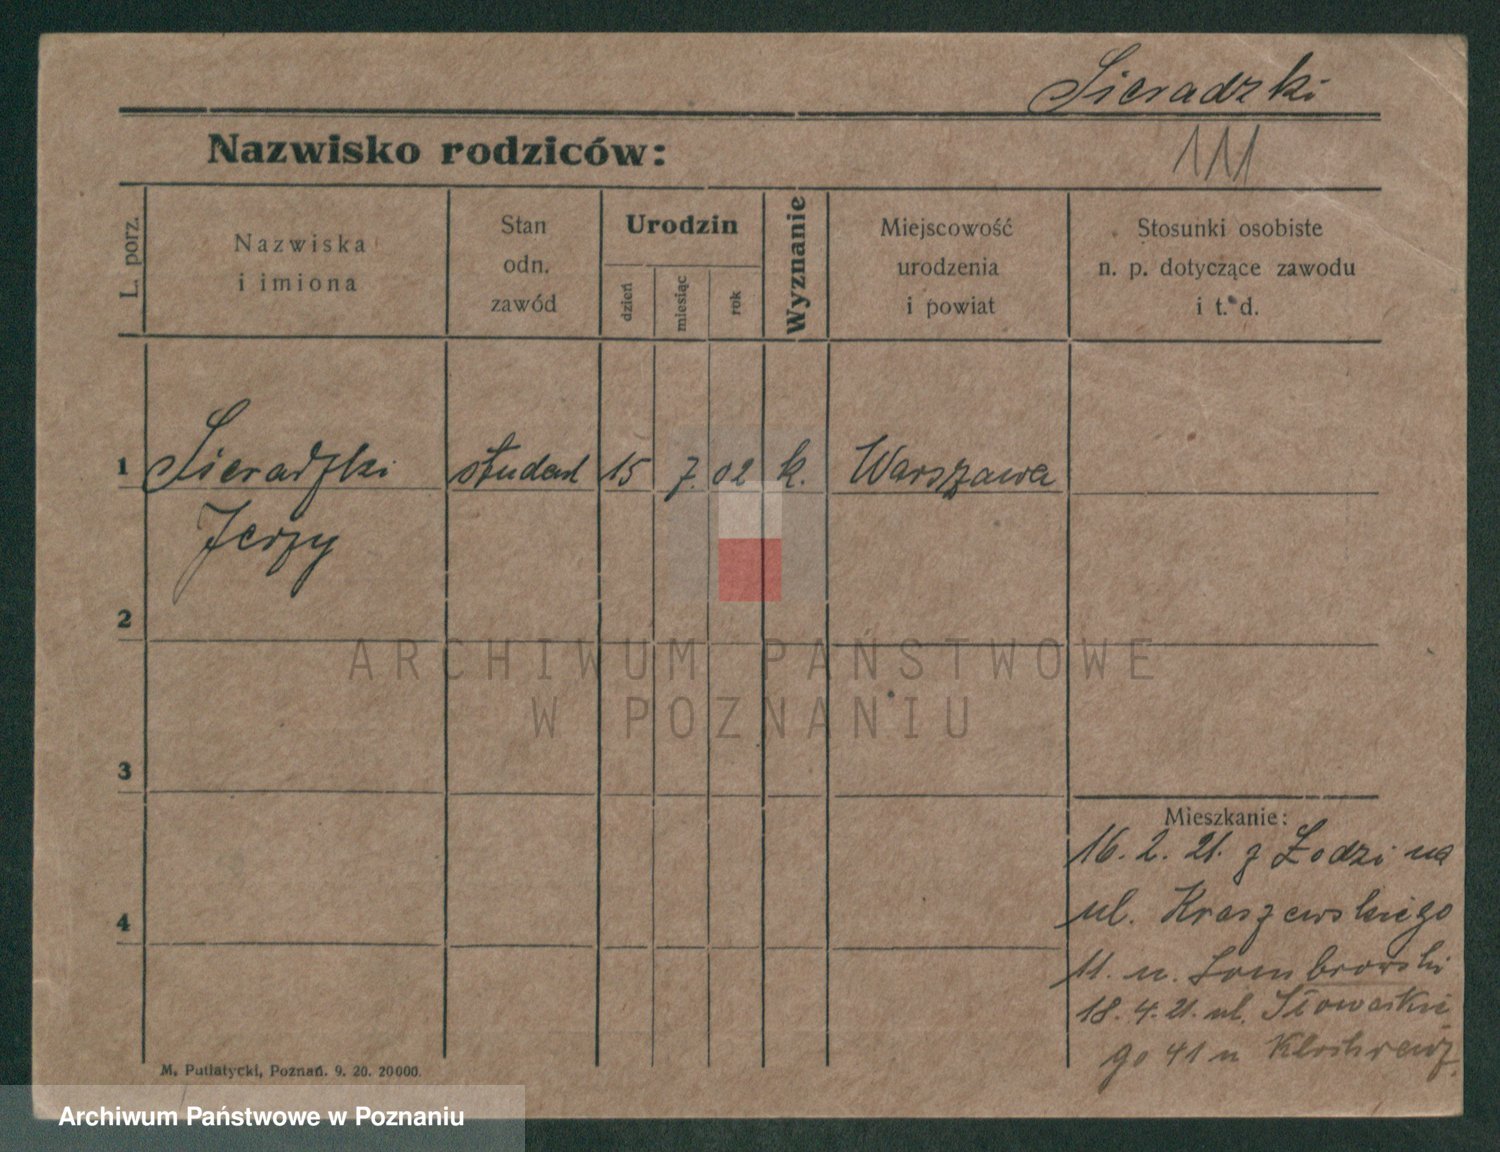 Sieradzki
111
Nazwisko rodziców:
L. porz.
Nazwiska
i imiona
Stan
odn.
zawód
Urodzin
dzień
miesiąc
rok
Wyznanie
Miejscowość
urodzenia
i powiat
Stosunki osobiste
n. p. dotyczące zawodu
i t. d.
1 Sieradzki student 15 7. 02 k. Warszawa
Jerzy
2
ARCHIWUM PAŃSTWOWE
W POZNANIU
3
Mieszkanie:
16. 2. 21. z Łodzi na
ul. Kraszewskiego
4
11. u. Dombrowski
18. 4. 21. ul. Słowackie
go 41 u
M. Putiatycki, Poznań. 9. 20. 20000.
Archiwum Państwowe w Poznaniu